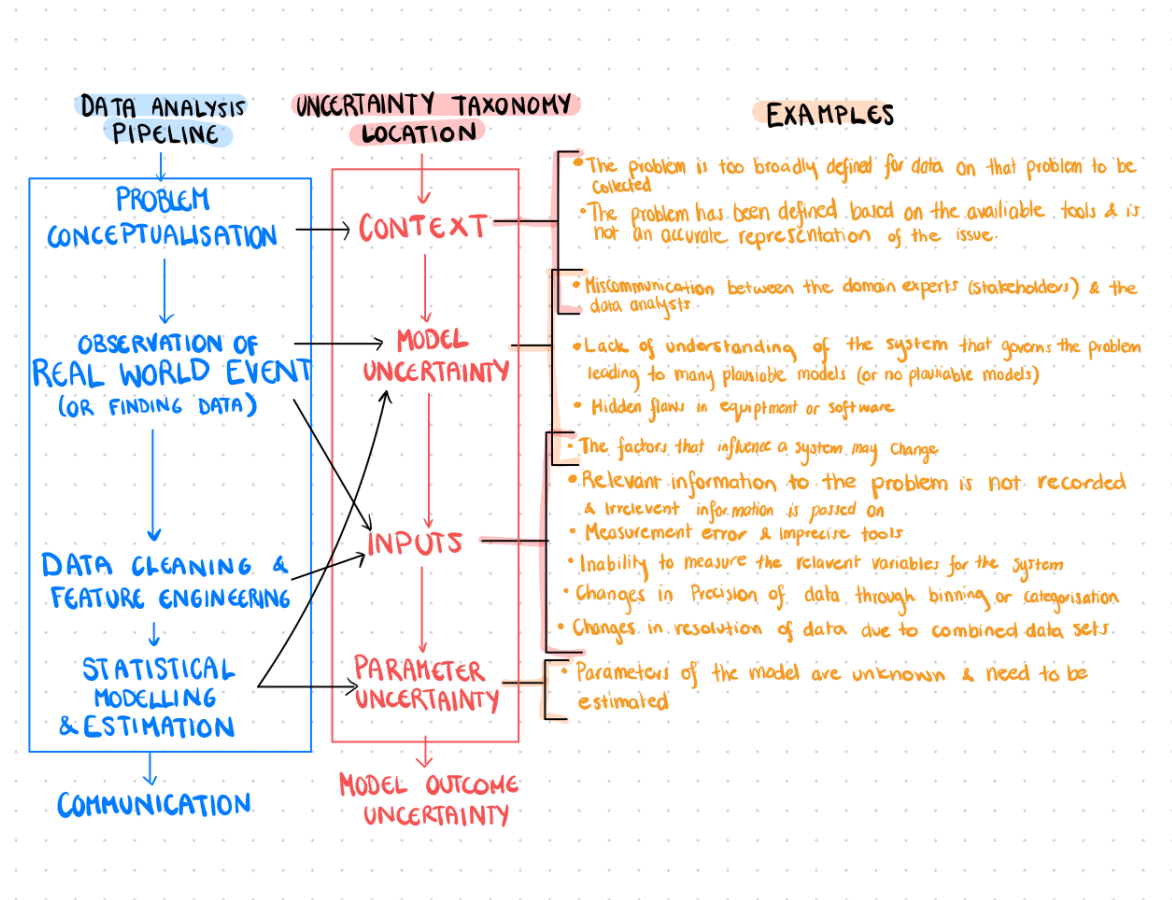 DATA ANALYSIS
PIPELINE
PROBLEM
CONCEPTUALISATION
OBSERVATION OF
REAL WORLD EVENT
(OR FINDING DATA)
DATA CLEANING &
FEATURE ENGINEERING
STATISTICAL
MODELLING
& ESTIMATION
COMMUNICATION
UNCERTAINTY TAXONOMY
LOCATION
CONTEXT
MODEL
UNCERTAINTY
INPUTS
PARAMETER
UNCERTAINTY
MODEL OUTCOME
UNCERTAINTY
EXAMPLES
• The problem is too broadly defined for data on that problem to be
collected
• The problem has been defined based on the availiable tools & is
not an accurate representation of the issue.
• Miscommunication between the domain experts (stakeholders) & the
data analysts
• Lack of understanding of the system that governs the problem
leading to many plausiable models (or no plausiable models)
• Hidden flaws in equiptment or software
• The factors that influence a system may change
• Relevant information to the problem is not recorded
& irrelevent information is passed on
• Measurement error & imprecise tools
• Inability to measure the relavent variables for the system
• Changes in Precision of data through binning or categorisation
• Changes in resolution of data due to combined data sets
• Parameters of the model are unknown & need to be
estimated